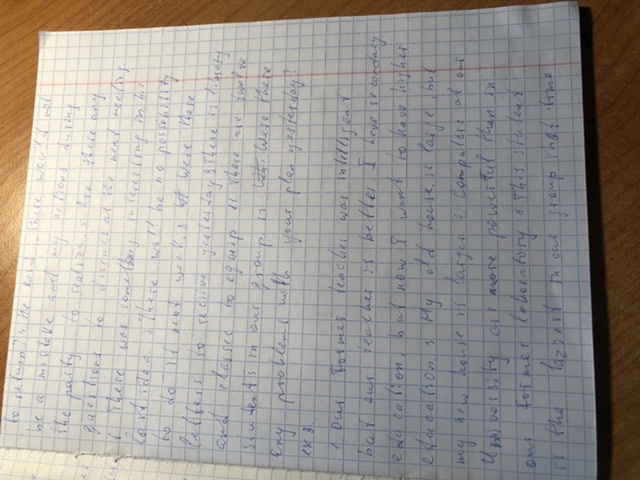 to return? 4. He said there would not
be a mistake and my actions during
the party to realize. 5. Are there any
questions to discuss at the next meeting
6. There was something interesting in his
last idea 7. There will be no possibility
to do it next week. 8 Were there
letters to receive yesterday 9 There is library
and classes to equip 11 There are twelve
students in our group 12 Were there
any problems with your plan yesterday?
ex 3.
1. Our former teacher was intelligent
but our teacher is better 2 I have secondary
education, but now I want to have higher
education. 3 My old house is large, but
my new house is larger 4 Computers at our
University are more powerful than in
our former laboratory 5 This student
is the laziest in our group That time